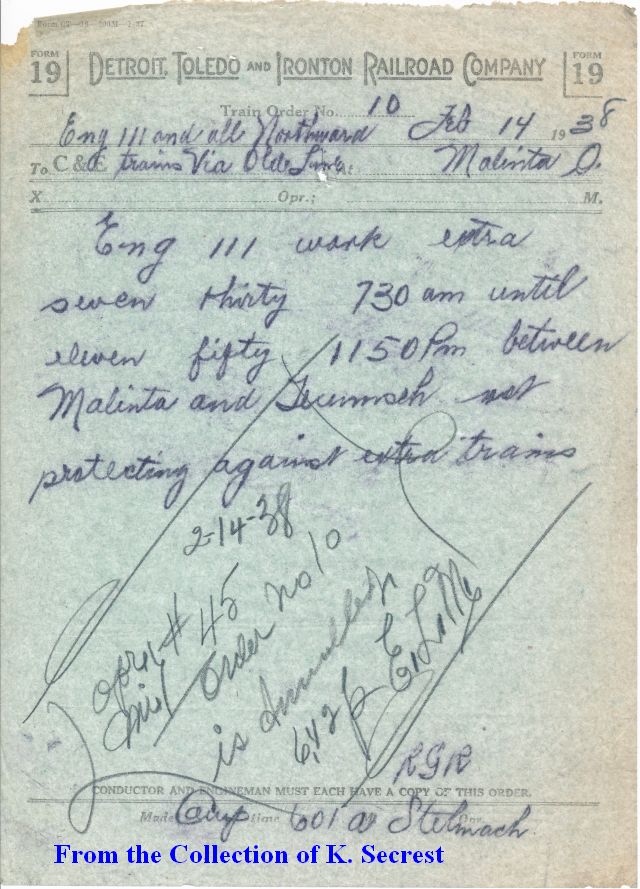 Form CT—19—200M—1-37
FORM 19 DETROIT, TOLEDO AND IRONTON RAILROAD COMPANY FORM 19
Train Order No. 10
Eng 111 and all Northward Feb 14 1938
To C & E trains Via Olde Line At Malinta O.
X Opr.; M.
Eng 111 work extra
seven thirty 730 am until
eleven fifty 1150 Pm between
Malinta and Tecumseh not
protecting against extra trains
2-14-38
opr #45
order no 10
is annulled
642 P E.L.M
RGR
CONDUCTOR AND ENGINEMAN MUST EACH HAVE A COPY OF THIS ORDER.
Made Comp time 601 a Opr. Stelmach
From the Collection of K. Secrest